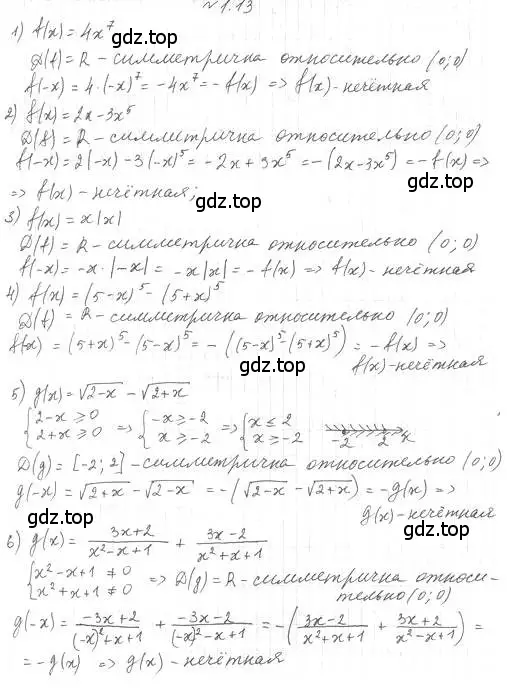 №1.13
1) f(x) = 4x⁷
D(f) = R - симметрична относительно (0;0)
f(-x) = 4·(-x)⁷ = -4x⁷ = -f(x) => f(x) - нечётная
2) f(x) = 2x - 3x⁵
gdz.top
D(f) = R - симметрична относительно (0;0)
f(-x) = 2(-x) - 3(-x)⁵ = -2x + 3x⁵ = -(2x - 3x⁵) = -f(x) =>
=> f(x) - нечётная;
gdz.top
3) f(x) = x|x|
D(f) = R - симметрична относительно (0;0)
f(-x) = -x·|-x| = -x|x| = -f(x) => f(x) - нечётная
4) f(x) = (5-x)⁵ - (5+x)⁵
gdz.top
D(f) = R - симметрична относительно (0;0)
f(x) = (5+x)⁵ - (5-x)⁵ = -((5-x)⁵ - (5+x)⁵) = -f(x) =>
f(x) - нечётная
gdz.top
5) g(x) = √2-x - √2+x
{2-x ≥ 0 => {-x ≥ -2 => {x ≤ 2
2+x ≥ 0 x ≥ -2 x ≥ -2 -2 2 x
D(g) = [-2; 2] - симметрична относительно (0;0)
g(-x) = √2+x - √2-x = -(√2-x - √2+x) = -g(x) =>
g(x) - нечётная
gdz.top
6) g(x) = 3x+2 / x²-x+1 + 3x-2 / x²+x+1
{x²-x+1 ≠ 0
x²+x+1 ≠ 0 => D(g) = R - симметрична относи-
тельно (0;0)
g(-x) = -3x+2 / (-x)²+x+1 + -3x-2 / (-x)²-x+1 = -(3x-2 / x²+x+1 + 3x+2 / x²-x+1) =
= -g(x) => g(x) - нечётная
gdz.top